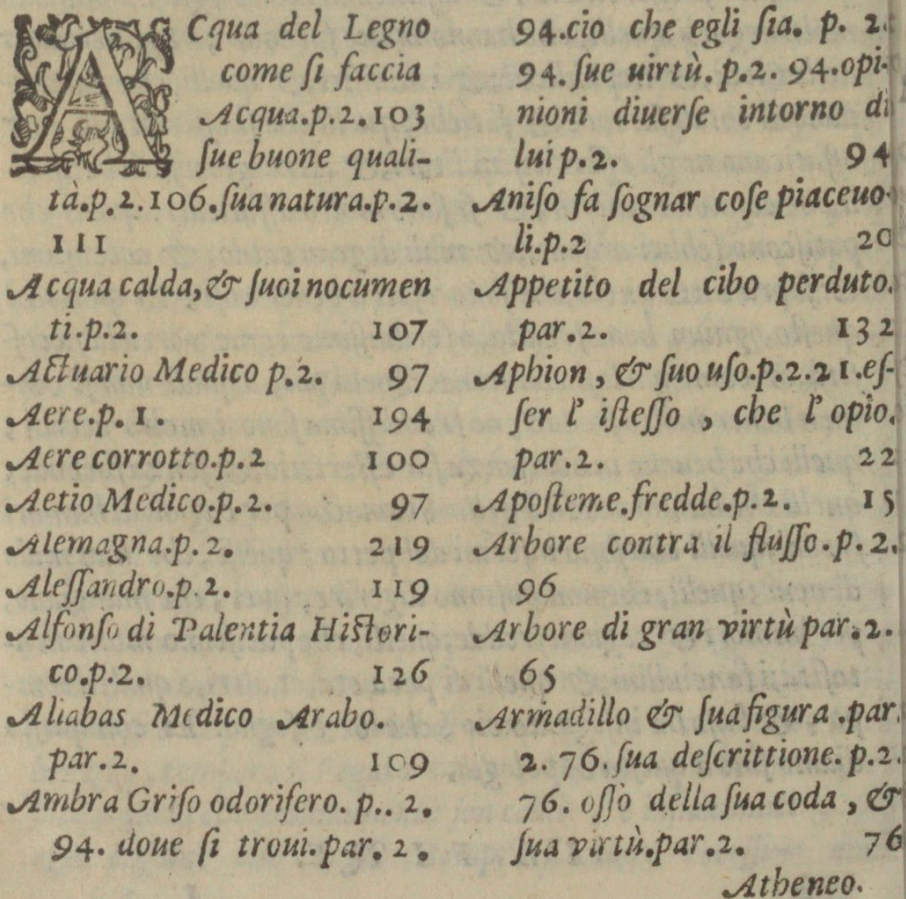 ACqua del Legno
come ſi faccia
Acqua.p.2.103
ſue buone quali-
tà.p.2.106.ſua natura.p.2.
111
Acqua calda,& ſuoi nocumen
ti.p.2. 107
Actuario Medico p.2. 97
Aere.p.1. 194
Aere corrotto.p.2 100
Aetio Medico.p.2. 97
Alemagna.p.2. 219
Aleſſandro.p.2. 119
Alfonſo di Palentia Hiſtori-
co.p.2. 126
Aliabas Medico Arabo.
par.2. 109
Ambra Griſo odorifero. p..2.
94. doue ſi troui.par. 2.
94.cio che egli ſia. p. 2.
94. ſue uirtù. p.2. 94.opi-
nioni diuerſe intorno di
lui p.2. 94
Aniſo fa ſognar coſe piaceuo-
li.p.2 20
Appetito del cibo perduto.
par.2. 132
Aphion, & ſuo uſo.p.2.21.eſ-
ſer l' iſteſſo, che l'opio.
par.2. 22
Apoſteme.fredde.p.2. 15
Arbore contra il fluſſo.p.2.
96
Arbore di gran virtù par.2.
65
Armadillo & ſua figura .par.
2. 76. ſua deſcrittione. p.2.
76. oſſo della ſua coda, &
ſua virtù.par.2. 76
Atheneo.